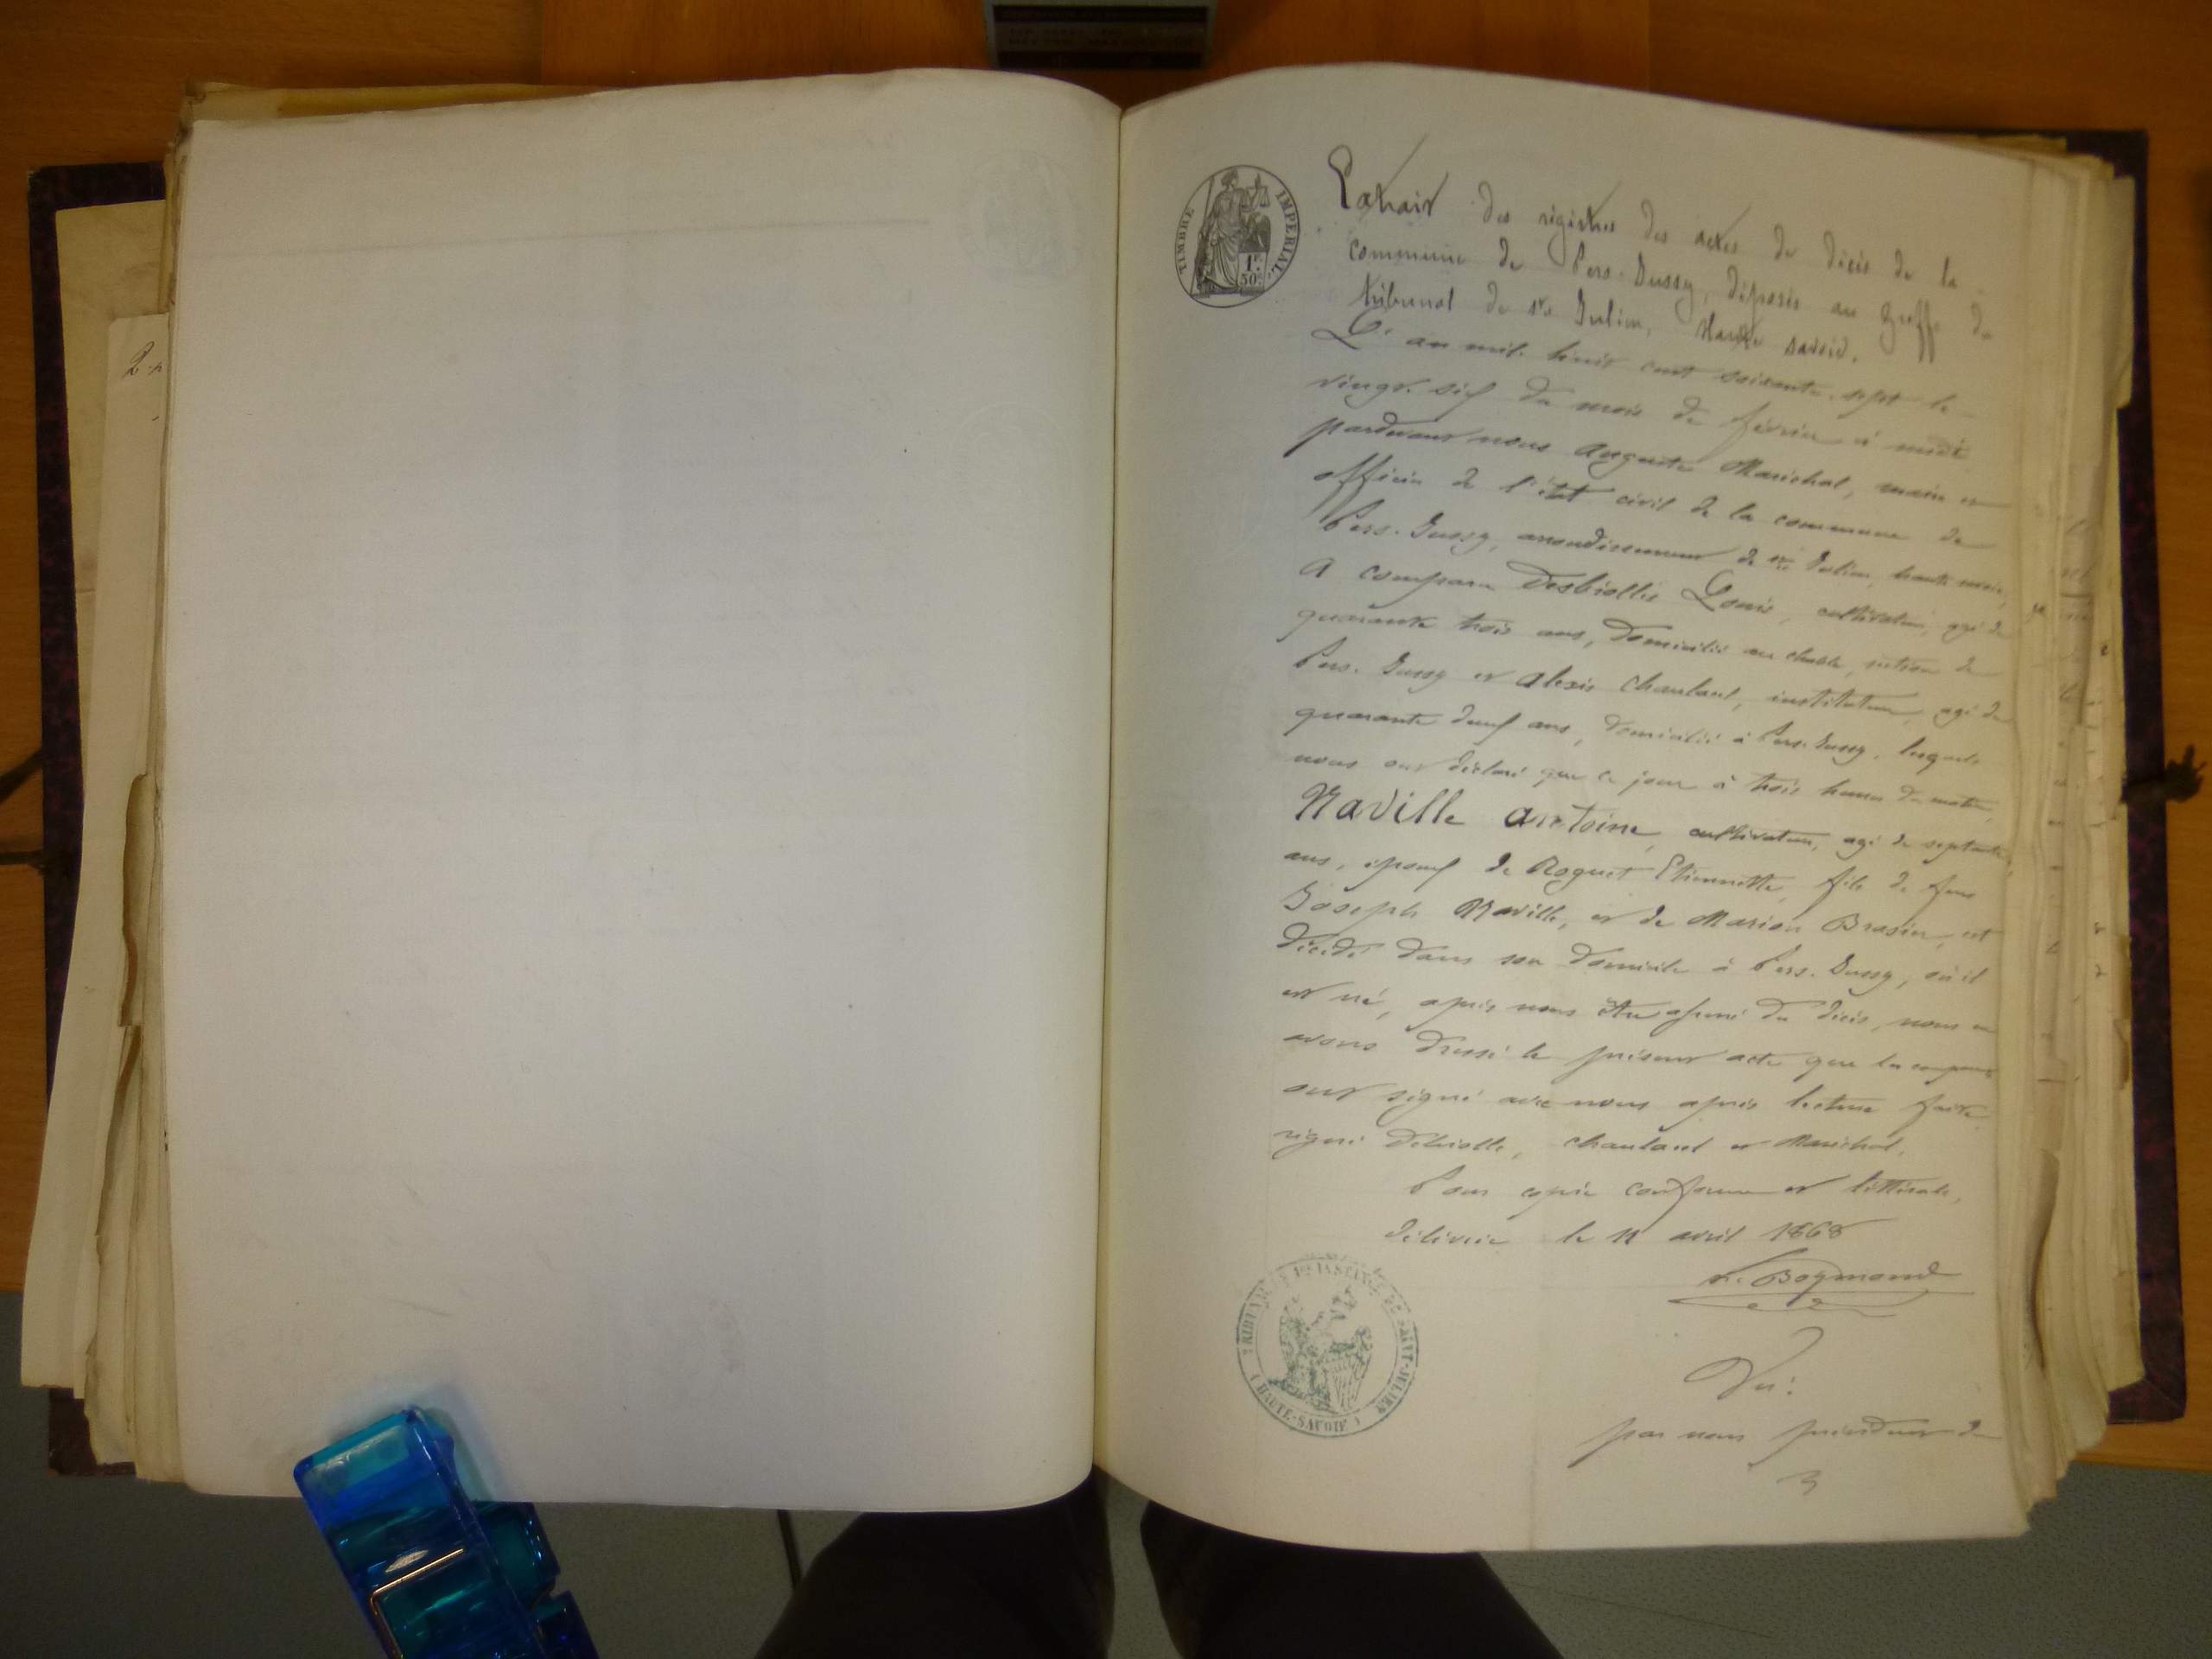 TIMBRE IMPERIAL
1F.
50c.
Extrait des régistres des actes de décès de la
commune de Pers-Jussy, déposés au Greffe du
tribunal de st Julien, Haute savoie.
L'an mil huit cent soixante-sept le
vingt-six du mois de février à midi
pardevant nous Auguste Maréchal, maire et
officier de l'état civil de la commune de
Pers-Jussy, arrondissement de st Julien, haute savoie,
a comparu Desbiolles Louis, cultivateur, agé de
quarante trois ans, domicilié au chable, section de
Pers-Jussy et Alexis chautant, instituteur, agé de
quarante deux ans, domicilié à Pers-Jussy, lesquels
nous ont déclaré que ce jour à trois heures du matin,
Naville antoine, cultivateur, agé de septante
ans, époux de Roguet Etiennette, fils de feus
Joseph Naville, et de Marie Brasier, est
décédé dans son domicile à Pers-Jussy, où il
est né, après nous être assuré du décès, nous en
avons dressé le présent acte que les comparants
ont signé avec nous après lecture faite
signé Debiolle, chautant et Maréchal.
Pour copie conforme et littérale,
délivrée le 11 avril 1868
Boymond
TRIBUNAL DE 1RE INSTANCE DE SAINT-JULIEN
(HAUTE-SAVOIE)
Vu:
par nous président du
2